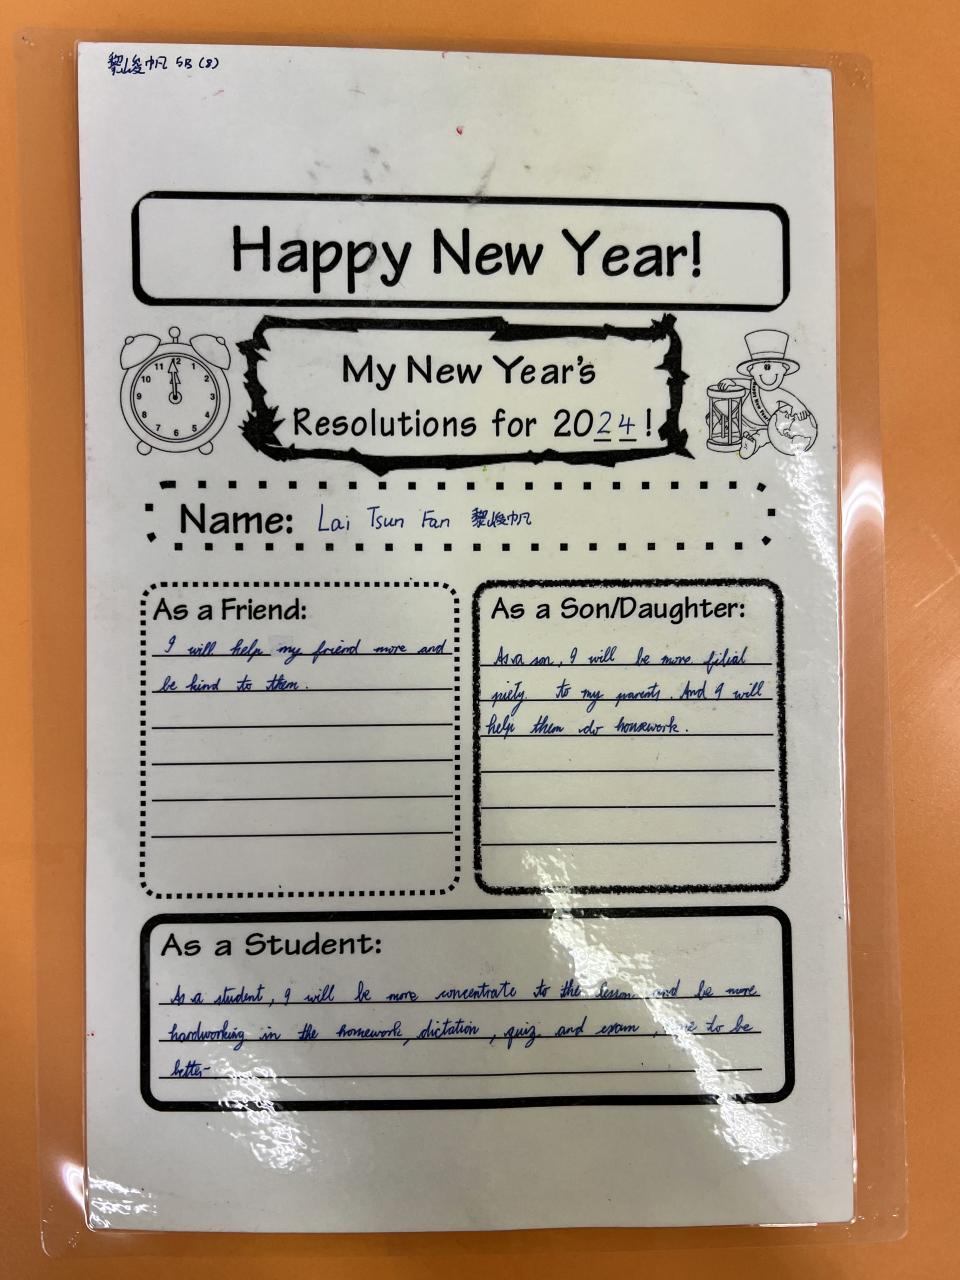 黎峻帆 5B (8)
Happy New Year!
My New Year's
Resolutions for 2024!
Name: Lai Tsun Fan 黎峻帆
As a Friend:
I will help my friend more and
be kind to them.
As a Son/Daughter:
As a son, I will be more filial
piety to my parents. And I will
help them do housework.
As a Student:
As a student, I will be more concentrate to the lesson and be more
hardworking in the homework, dictation, quiz and exam, to be
better